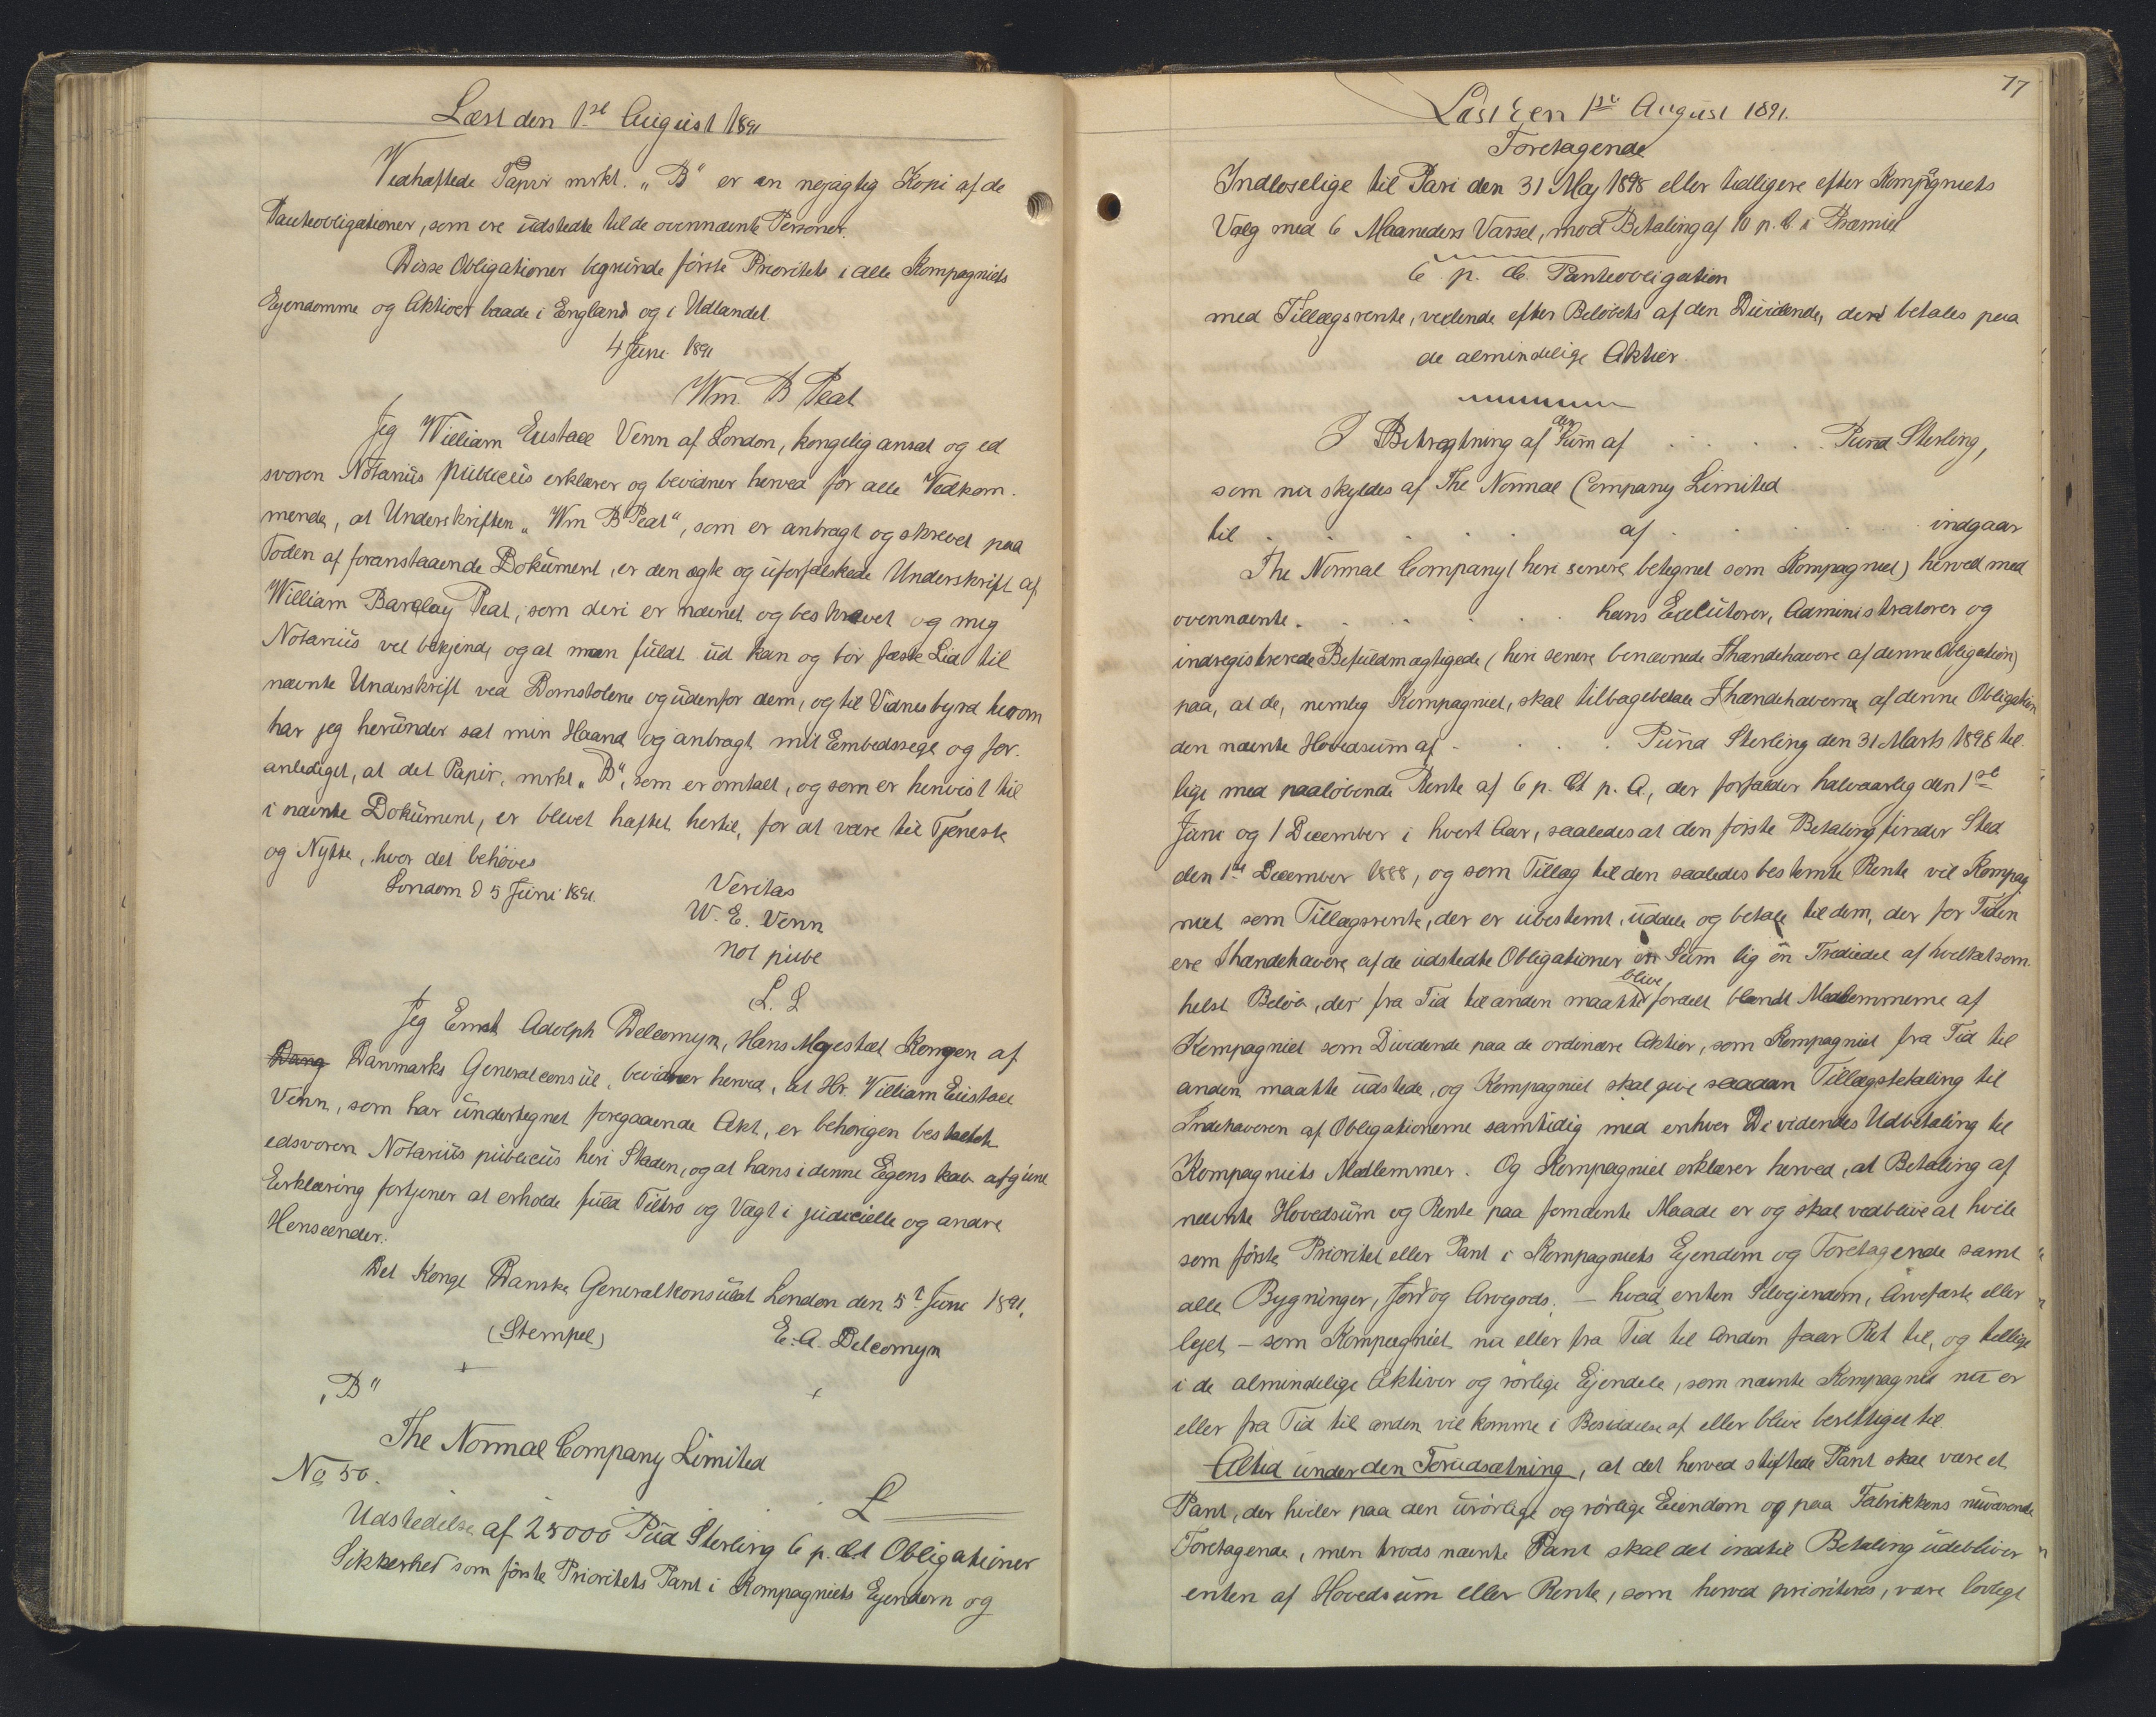 Læst den 1ste August 1891
Vedhæftede Papir mrkt. „B" er en nøjagtig Kopi af de
Panteobligationer, som ere udstedte til de ovennævnte Personer.
Disse Obligationer begrunde første Prioritets i alle Kompagniets
Ejendomme og Aktiver baade i England og i Udlandet
4 Juni 1891
Wm. B Peat
Jeg William Eustace Venn af London, kongelig ansat og ed
svoren Notarius publicus erklærer og bevidner herved for alle Vedkom.
mende, at Underskriften „Wm B Peat", som er anbragt og skrevet paa
Foden af foranstaaende Dokument, er den ægte og uforfalskede Underskrift af
William Barclay Peat, som deri er nævnt og beskrevet og mig
Notarius vel bekjendt, og at man fuldt ud kan og bør fæste Lid til
nævnte Underskrift ved Domstolene og udenfor dem, og til Vidnesbyrd herom
har jeg herunder sat min Haand og anbragt mit Embedssegl og for.
anlediget, at det Papir, mrkt „B", som er omtalt, og som er henvist til
i nævnte Dokument, er blevet hæftet hertil, for at være til Tjeneste
og Nytte, hvor det behøves
London d 5 Juni 1891.
Veritas
W. E. Venn
not publ
L. S
Jeg Ernst Adolph Delcomyn, Hans Majestæt Kongen af
Dang Danmarks Generalconsul, bevidner herved, at Hr. William Eustace
Venn, som har undertegnet foregaaende Akt, er behørigen beskikket
edsvoren Notarius publicus heri Staden, og at hans i denne Egenskab afgivne
Erklæring fortjener at erholde fuld Tiltro og Vægt i judicielle og andre
Henseender.
Det Kongl Danske Generalkonsulat London den 5t Juni 1891.
(Stempel) E. A. Delcomyn
„B"
The Normal Company Limited
No 50. £
Udstedelse af 25000 Pud Sterling 6 p. ct Obligationer
Sikkerhed som første Prioritets Pant i Kompagniets Ejendom og
77
Læst den 1ste August 1891.
Foretagende
Indløselige til Pari den 31 Maj 1898 eller tidligere efter Kompagniets
Valg med 6 Maaneders Varsel, mod Betaling af 10 p. C. i Præmie
6 p. Ct. Panteobligation
med Tillægsrente, vexlende efter Beløbets af den Dividende, der betales paa
de almindelige Aktier.
I Betragtning af den Sum af . . . . . Pund Sterling,
som nu skyldes af The Normal Company Limited
til . . . . . af . . . . . indgaar
The Normal Company (heri senere betegnet som Kompagniet) herved med
ovennævnte . . . . . hans Executorer, Administratorer og
indregistrerede Befuldmægtigede (heri senere benævnede Ihændehavere af denne Obligation)
paa, at de, nemlig Kompagniet, skal tilbagebetale Ihændehaverne af denne Obligation
den nævnte Hovedsum af - . . . . Pund Sterling den 31 Marts 1898 til
lige med paaløbende Rente af 6 p. Ct p. A., der forfalder halvaarlig den 1ste
Juni og 1 December i hvert Aar, saaledes at den første Betaling finder Sted
den 1ste December 1888, og som Tillæg til den saaledes bestemte Rente vil Kompag
niet som Tillægsrente, der er ubestemt, uddele og betale til dem, der for Tiden
ere Ihændehavere af de udstedte Obligationer en Sum lig en Trediedel af hvilketsom
helst Beløb, der fra Tid til anden maatte blive fordelt blandt Medlemmerne af
Kompagniet som Dividende paa de ordinære Aktier, som Kompagniet fra Tid til
anden maatte udstede, og Kompagniet skal give saadan Tillægsbetaling til
Indehaveren af Obligationerne samtidig med enhver Dividendes Udbetaling til
Kompagniets Medlemmer. Og Kompagniet erklærer herved, at Betaling af
nævnte Hovedsum og Rente paa fornævnte Maade er og skal vedblive at hvile
som første Prioritet eller Pant i Kompagniets Ejendom og Foretagende samt
alle Bygninger, Jord og Arvegods. — hvad enten Selvejendom, Arvefæste eller
lejet — som Kompagniet nu eller fra Tid til Anden faar Ret til, og tillige
i de almindelige Aktiver og rørlige Ejendele, som nævnte Kompagnie nu er
eller fra Tid til anden vil komme i Besiddelse af eller blive berettiget til.
Altid under den Forudsætning, at det herved stiftede Pant skal være et
Pant, der hviler paa den urørlige og rørlige Eiendom og paa Fabrikkens nuværende
Foretagende, men trods nævnte Pant skal det indtil Betaling udebliver
enten af Hovedsum eller Rente, som herved prioriteres, være lovligt